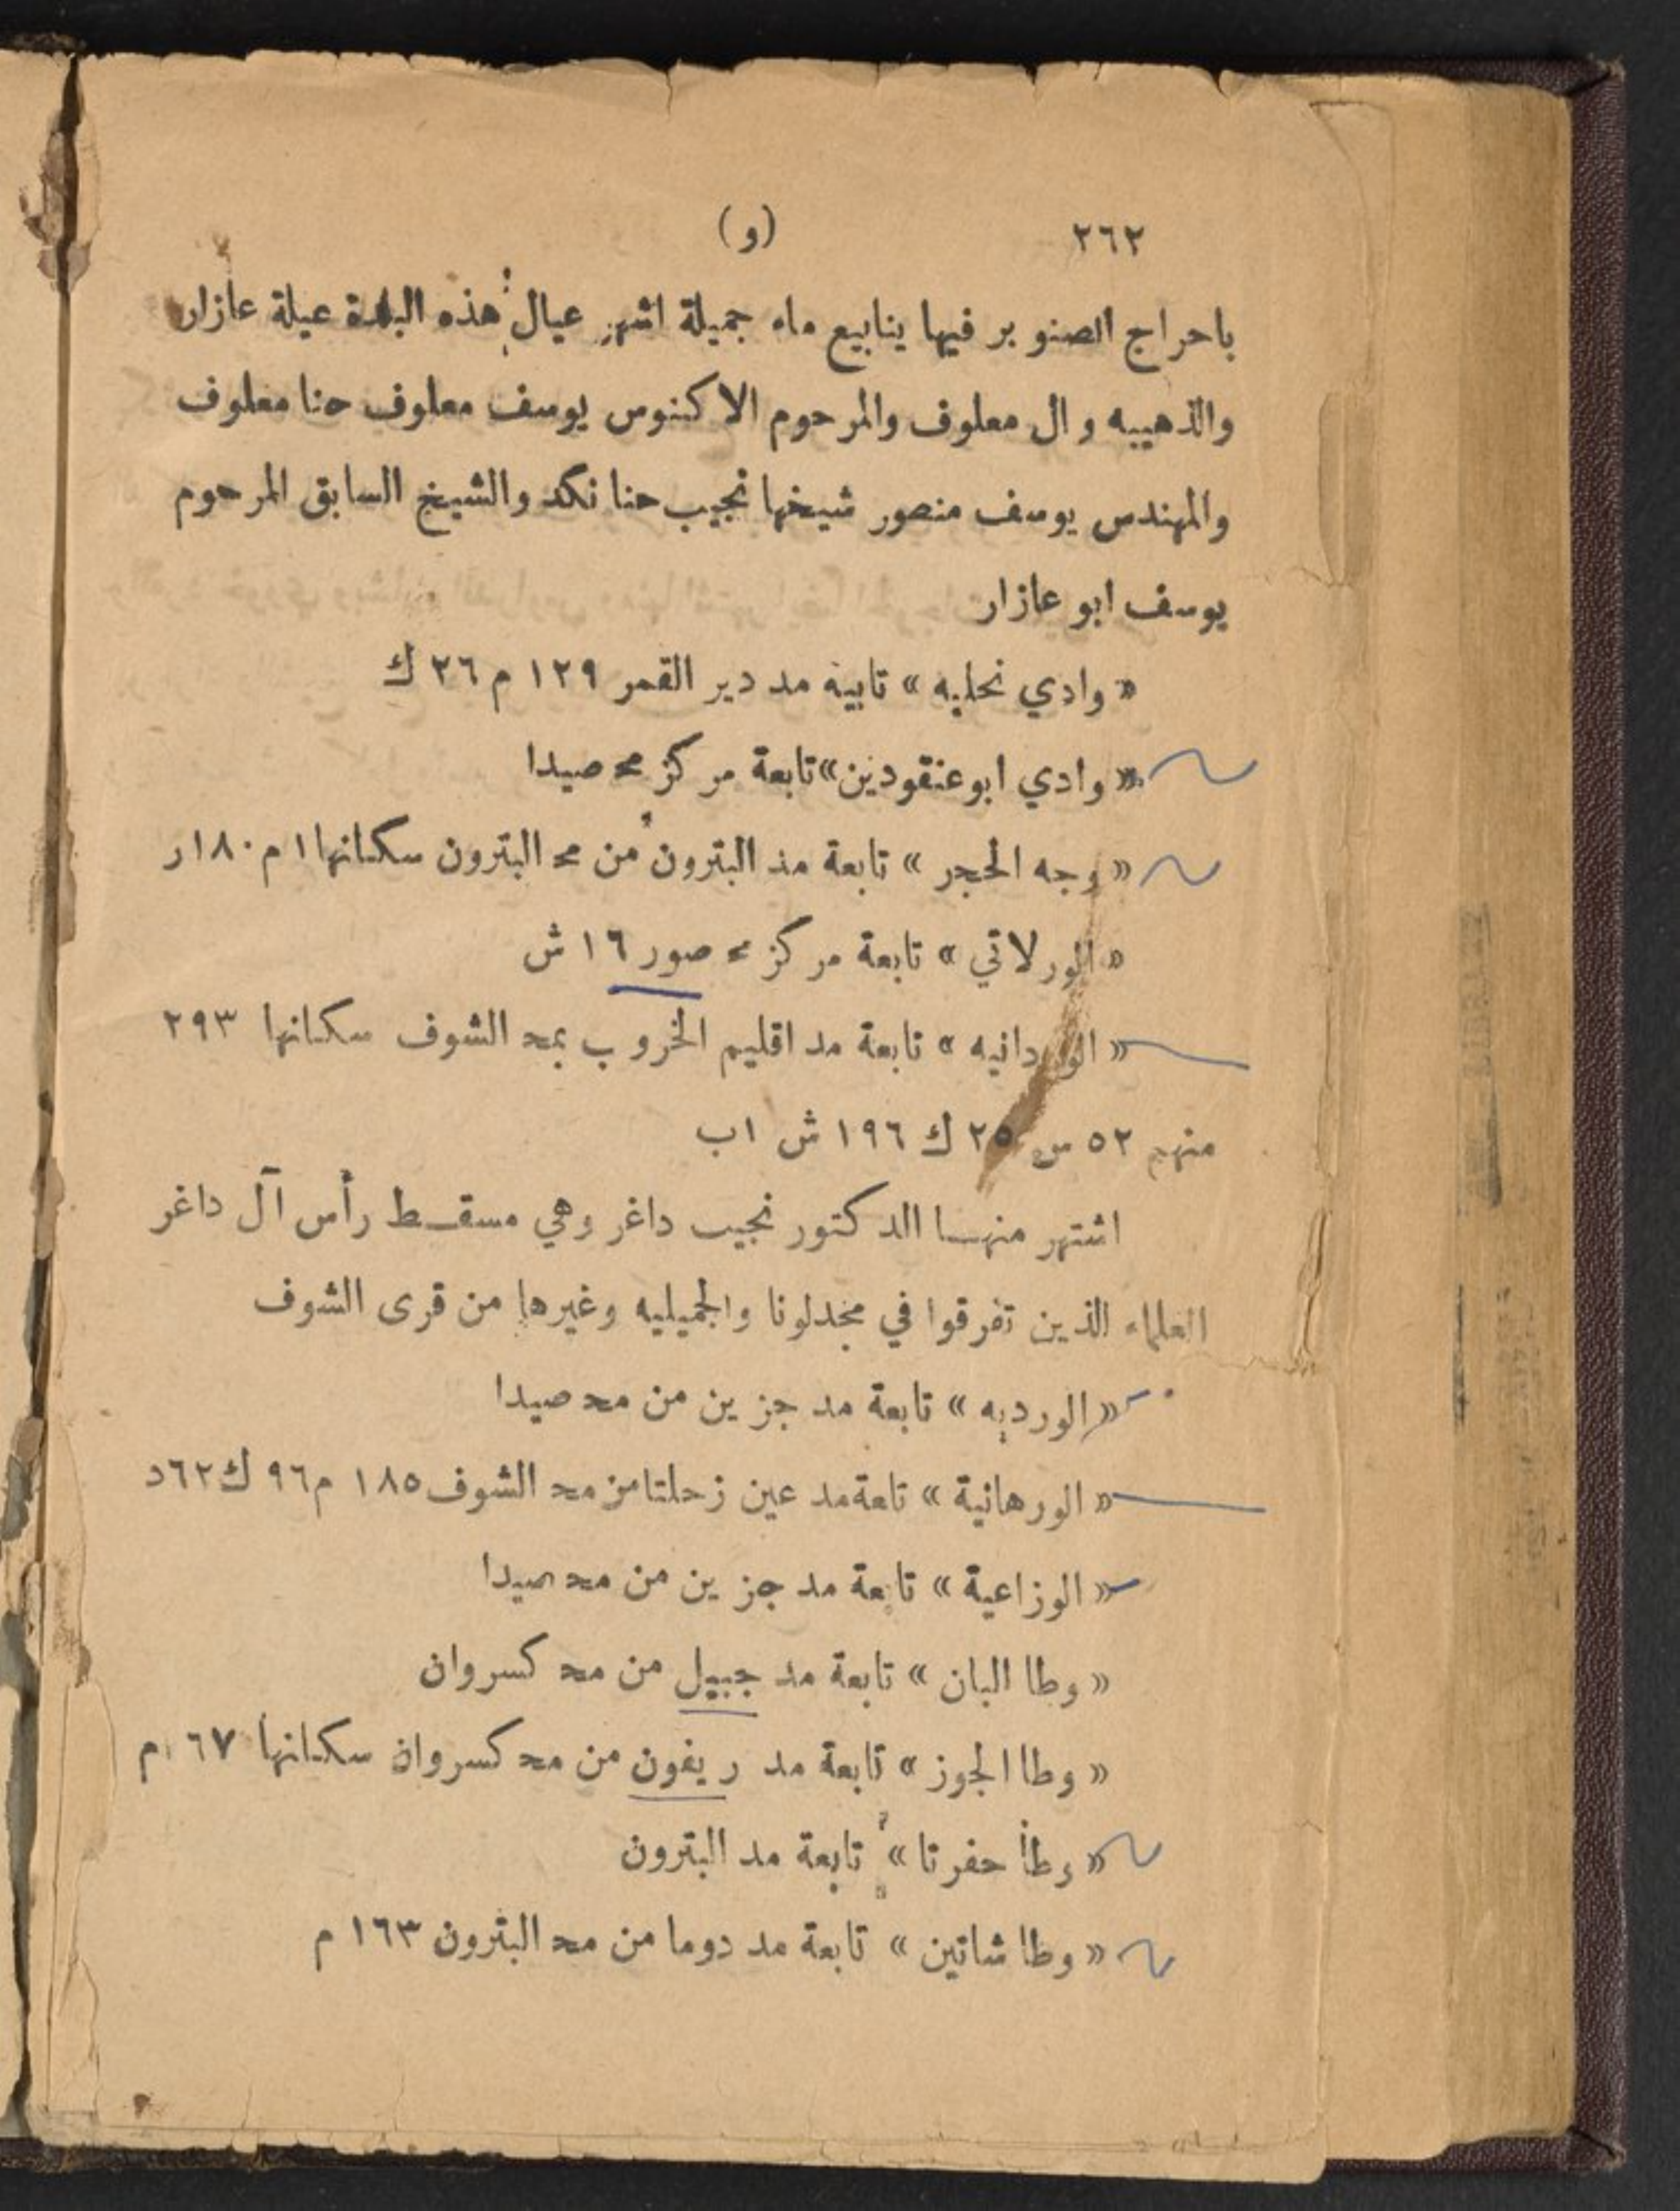 ٢٦٢ (و)
باحراج الصنوبر فيها ينابيع ماء جميلة اشهر عيال هذه البلدة عيلة عازار
والذهيبه وال معلوف والمرحوم الاكنوس يوسف معلوف حنا معلوف
والمهندس يوسف منصور شيخها نجيب حنا نكد والشيخ السابق المرحوم
يوسف ابو عازار
« وادي نحليه » تابية مد دير القمر ١٢٩ م ٢٦ ك
« وادي ابو عنقودين » تابعة مركز مح صيدا
« وجه الحجر » تابعة مد البترون من مح البترون سكانها ١ م ١٨٠ ر
« الورلاتي » تابعة مركز مح صور ١٦ ش
« الوردانيه » تابعة مد اقليم الخروب بمح الشوف سكانها ٢٩٣
منهم ٥٢ س ٢٥ ك ١٩٦ ش ١ ب
اشتهر منها الدكتور نجيب داغر وهي مسقط رأس آل داغر
العلماء الذين تفرقوا في مجدلونا والجميليه وغيرها من قرى الشوف
« الورديه » تابعة مد جزين من مح صيدا
« الورهانية » تابعة مد عين زحلتا من مح الشوف ١٨٥ م ٩٦ ك ٦٢ د
« الوزاعية » تابعة مد جزين من مح صيدا
« وطا البان » تابعة مد جبيل من مح كسروان
« وطا الجوز » تابعة مد ريفون من مح كسروان سكانها ٦٧ م
« وطأ حفرتا » تابعة مد البترون
« وطا شاتين » تابعة مد دوما من مح البترون ١٦٣ م